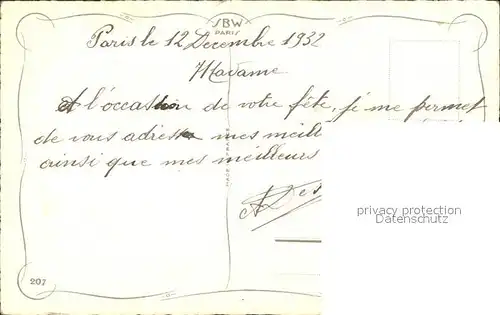 SBW
PARIS
Paris le 12 Decembre 1932
Madame
A l'occasion de votre fête, je me permet
de vous adresser mes meill
ainsi que mes meilleurs
privacy protection
Datenschutz
207